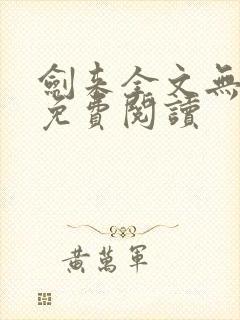 劍来全文無
免費閱讀
黃萬軍